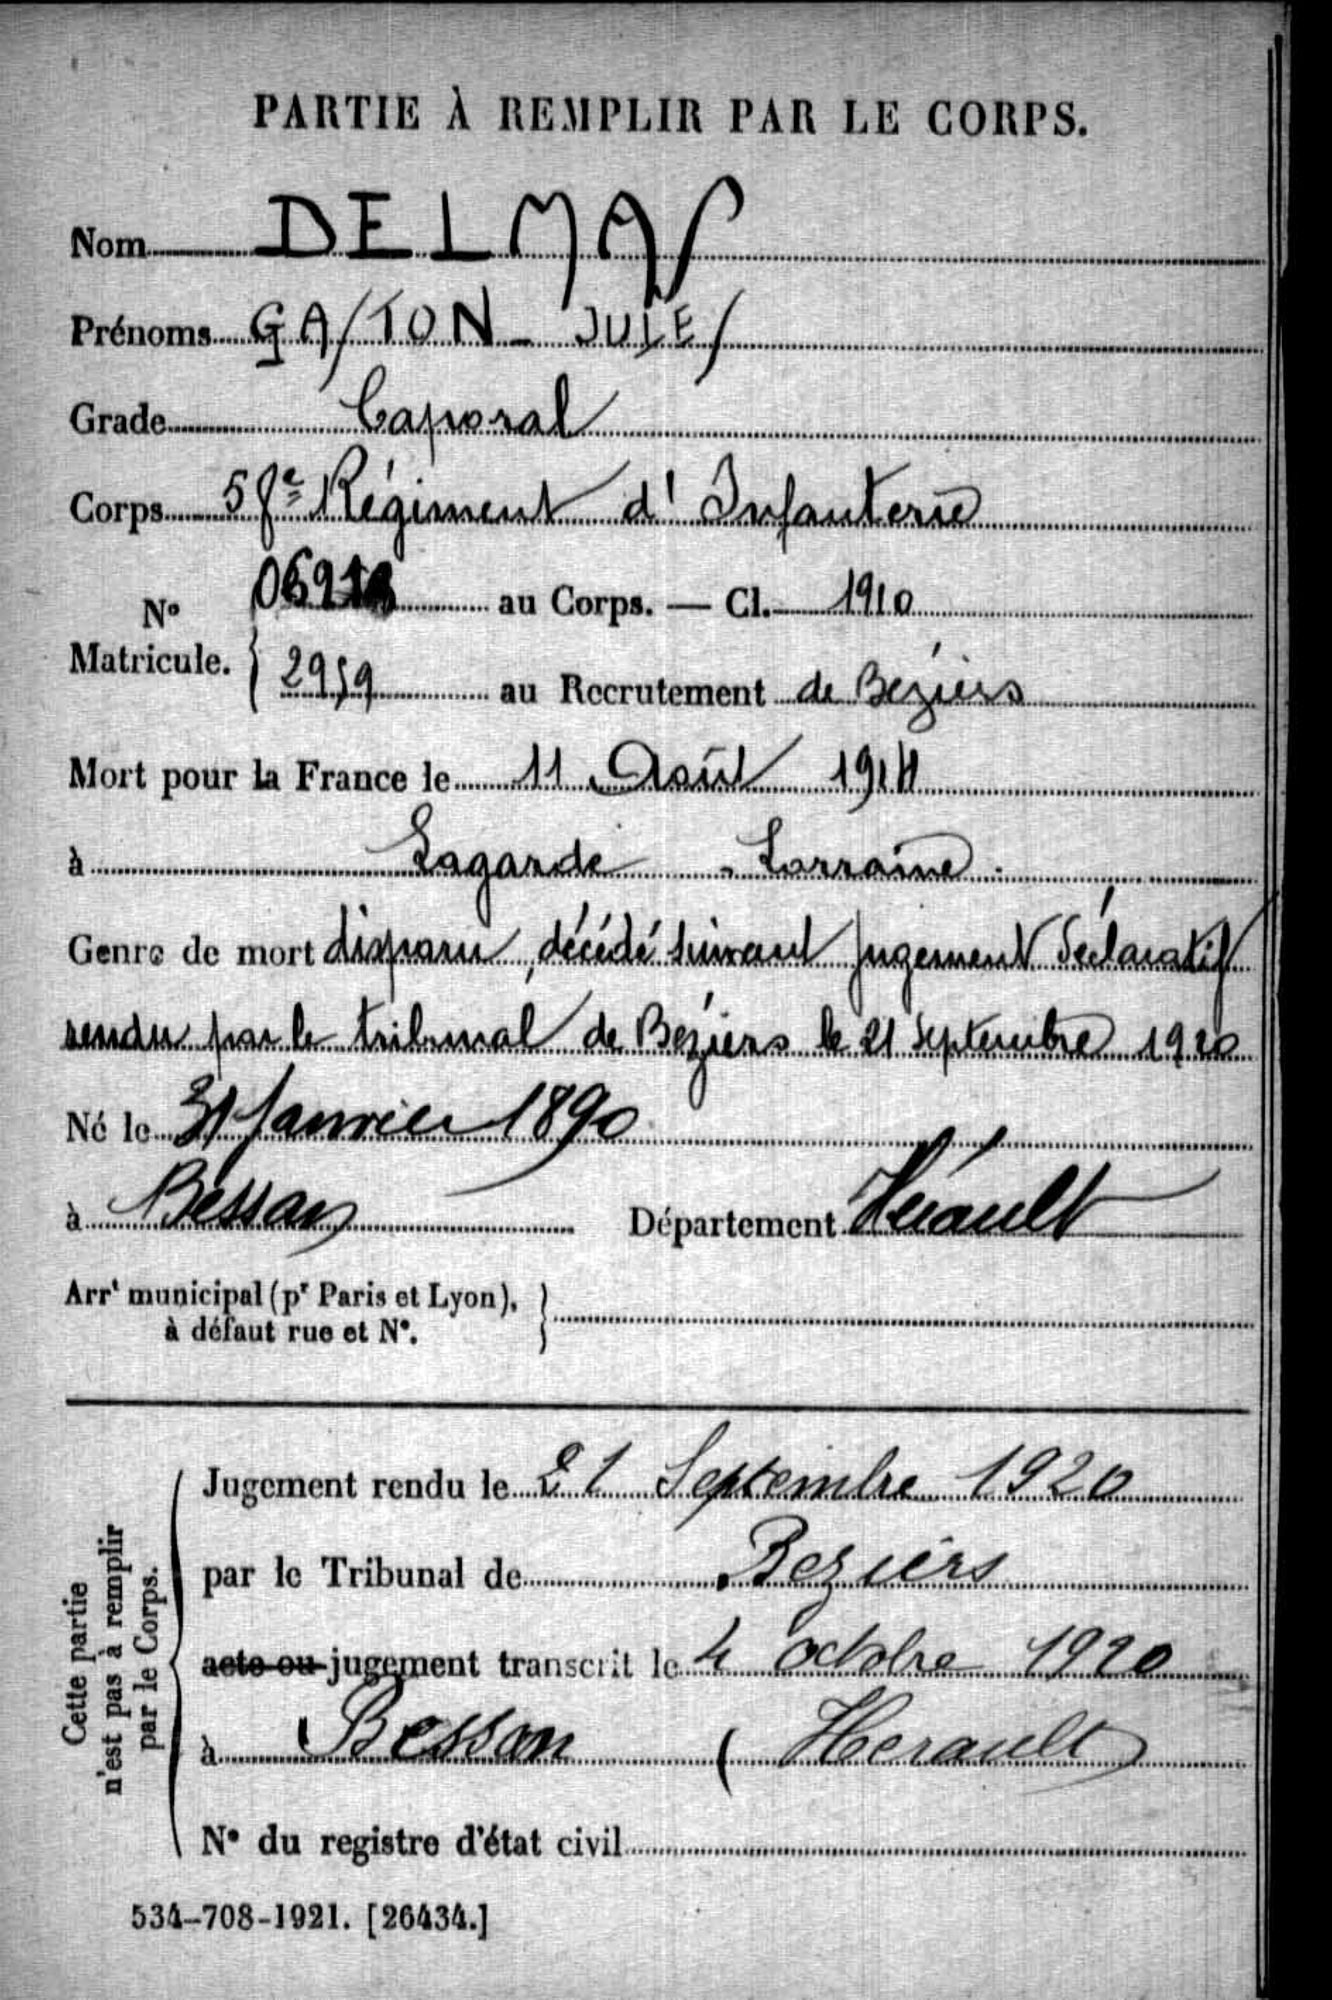 PARTIE À REMPLIR PAR LE CORPS.
Nom DELMAS
Prénoms GASTON - JULES
Grade Caporal
Corps 58e Régiment d'Infanterie
N° au Corps. — Cl. 1910
Matricule. 2959 au Recrutement de Béziers
Mort pour la France le 11 Août 1914
à Lagarde - Lorraine.
Genre de mort disparu, décédé suivant jugement déclaratif
rendu par le tribunal de Béziers le 21 Septembre 1920
Né le 31 Janvier 1890
à Bessan Département Hérault
Arrt municipal (pr Paris et Lyon),
à défaut rue et N°.
Cette partie
n'est pas à remplir
par le Corps.
Jugement rendu le 21 Septembre 1920
par le Tribunal de Beziers
acte ou jugement transcrit le 4 octobre 1920
à Bessan (Herault)
N° du registre d'état civil
534-708-1921. [26434.]